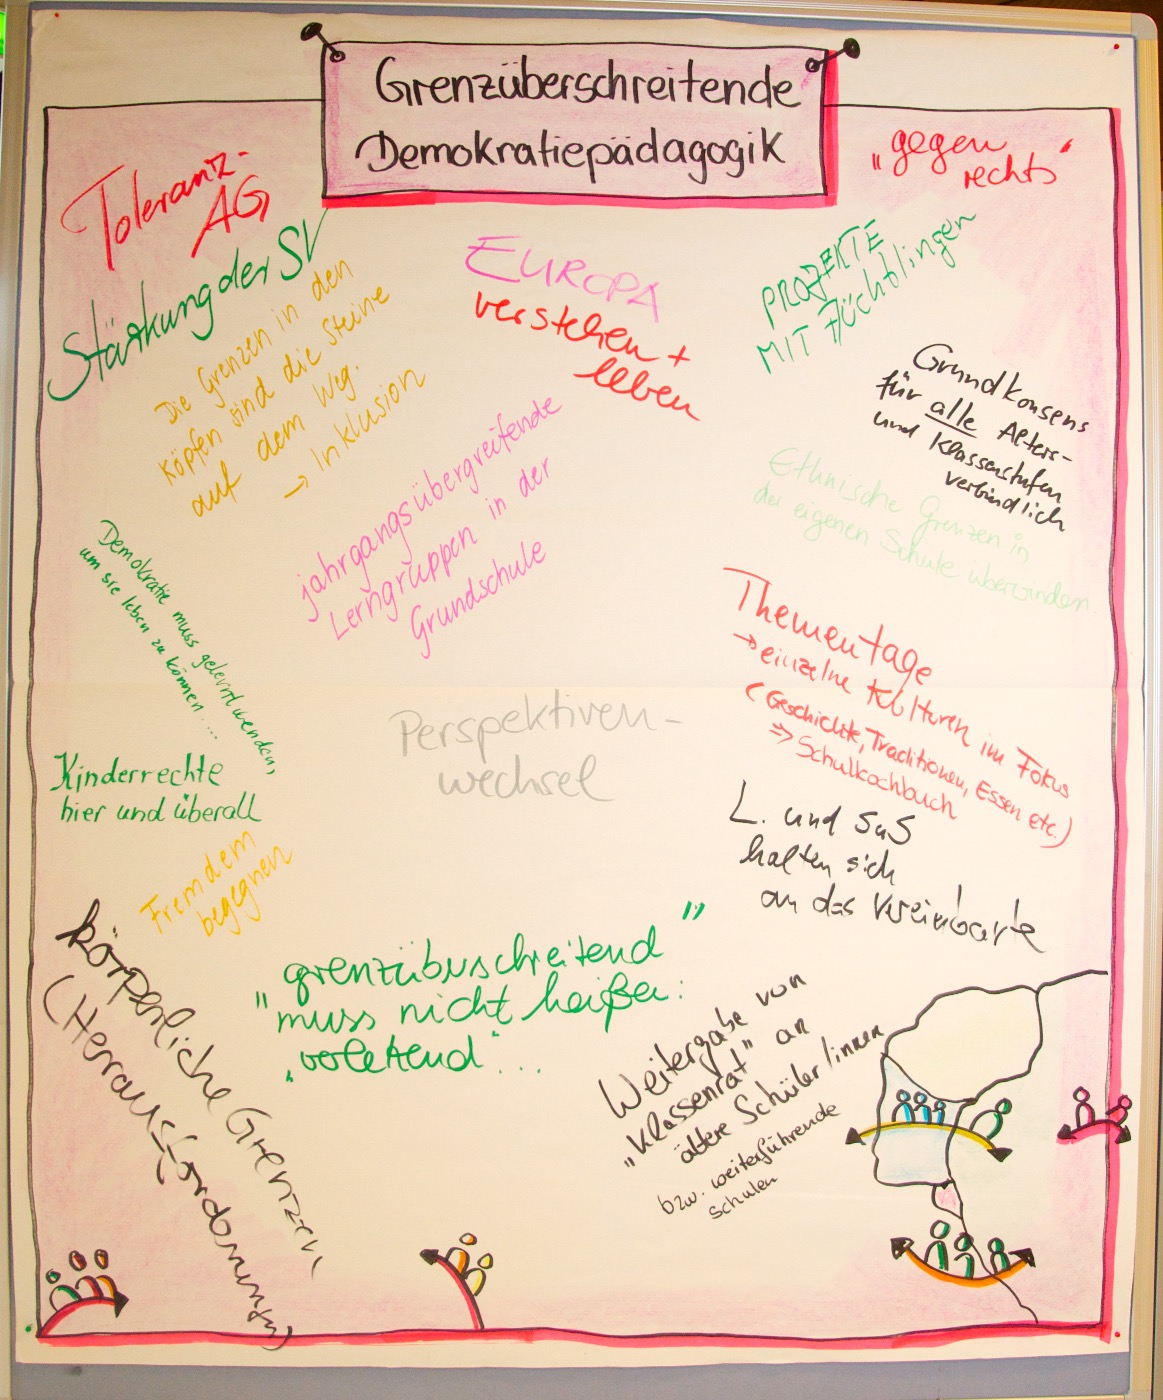 Grenzüberschreitende
Demokratiepädagogik
Toleranz-
AG
„gegen
rechts“
Stärkung der SV
EUROPA
verstehen +
leben
PROJEKTE
MIT Flüchtlingen
Die Grenzen in den
Köpfen sind die Steine
auf dem Weg.
→ Inklusion
Grundkonsens
für alle Alters-
und Klassenstufen
verbindlich
jahrgangsübergreifende
Lerngruppen in der
Grundschule
Ethnische Grenzen in
der eigenen Schule überwinden
Demokratie muss gelernt werden,
um sie leben zu können ...
Thementage
→ einzelne Kulturen im Fokus
(Geschichte, Traditionen, Essen etc.)
⇒ Schulkochbuch
Perspektiven-
wechsel
Kinderrechte
hier und überall
L. und SuS
halten sich
an das Vereinbarte
Fremdem
begegnen
körperliche Grenzen
(Herausforderung)
„grenzüberschreitend“
muss nicht heißen:
„verletzend“...
Weitergabe von
„Klassenrat“ an
ältere Schüler/innen
bzw. weiterführende
Schulen